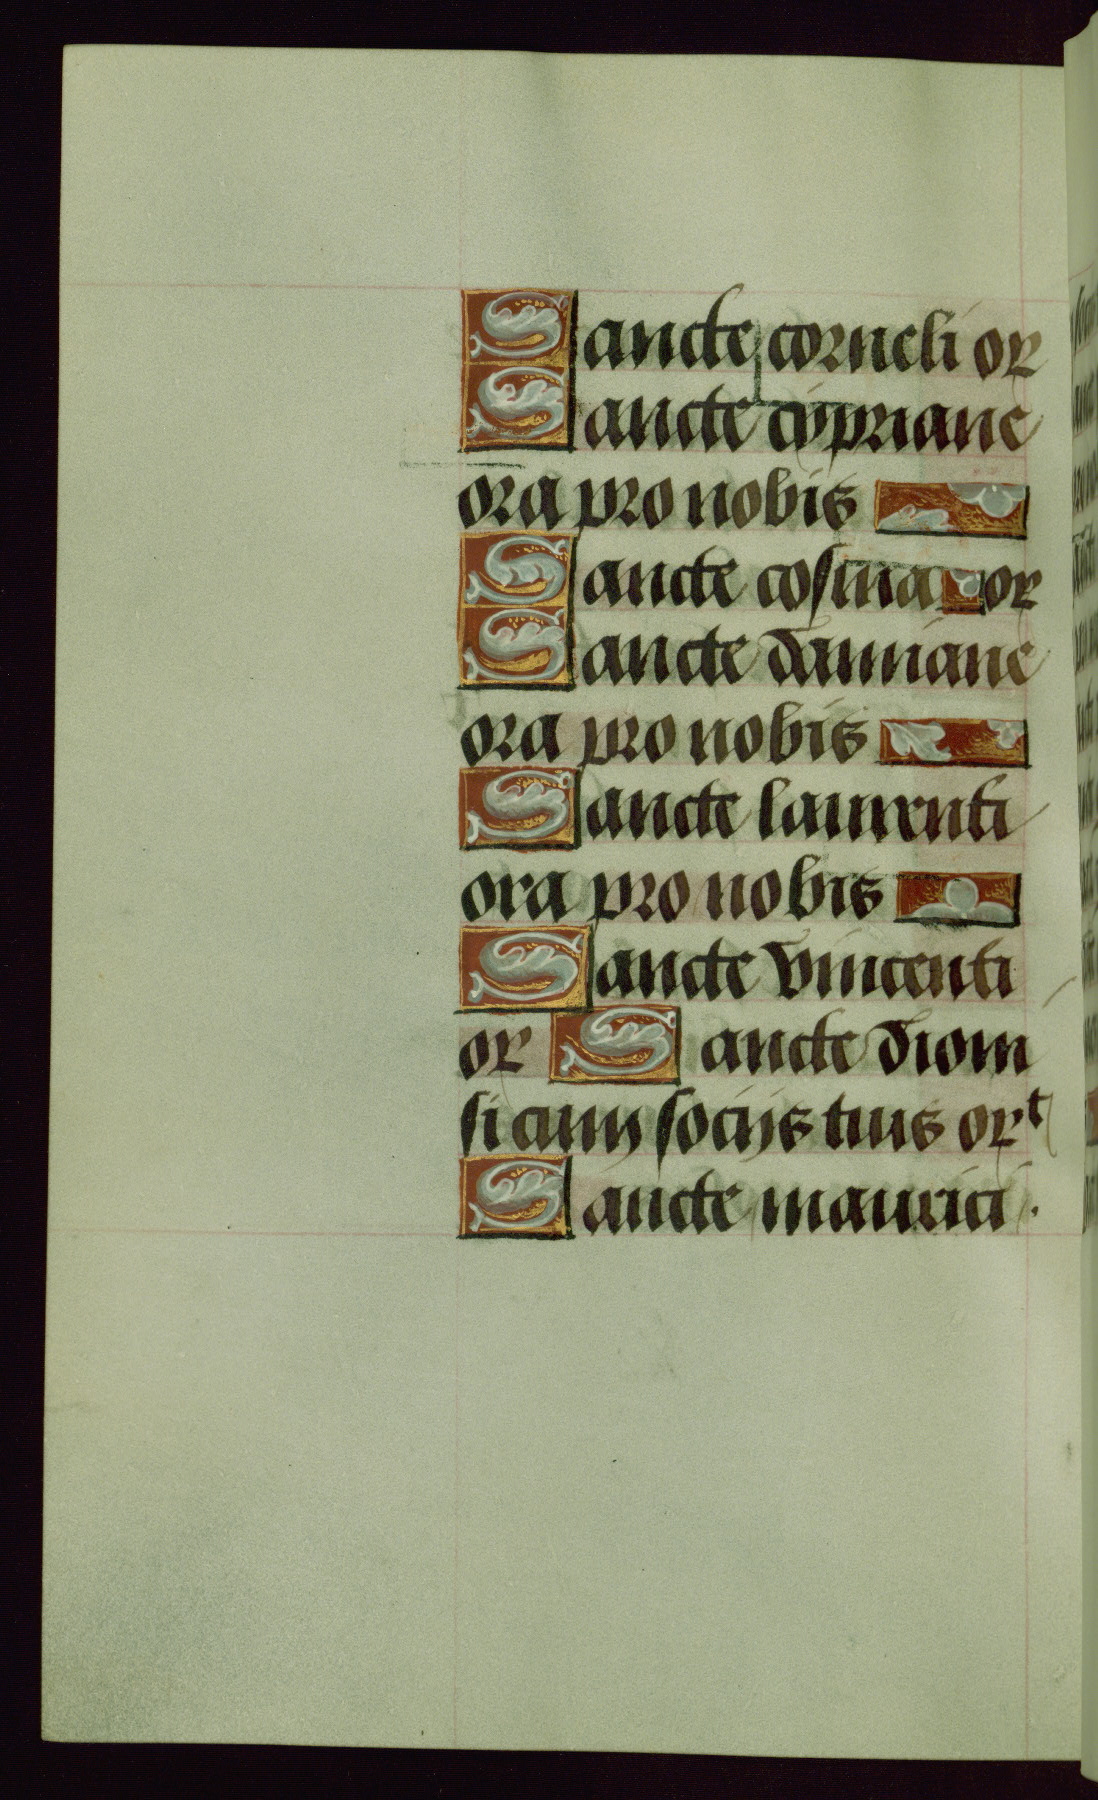 Sancte corneli or
Sancte cypriane
ora pro nobis
Sancte cosma or
Sancte damiane
ora pro nobis
Sancte laurenti
ora pro nobis
Sancte vincenti
or Sancte dioni
si cum socijs tuis or t
Sancte maurici .